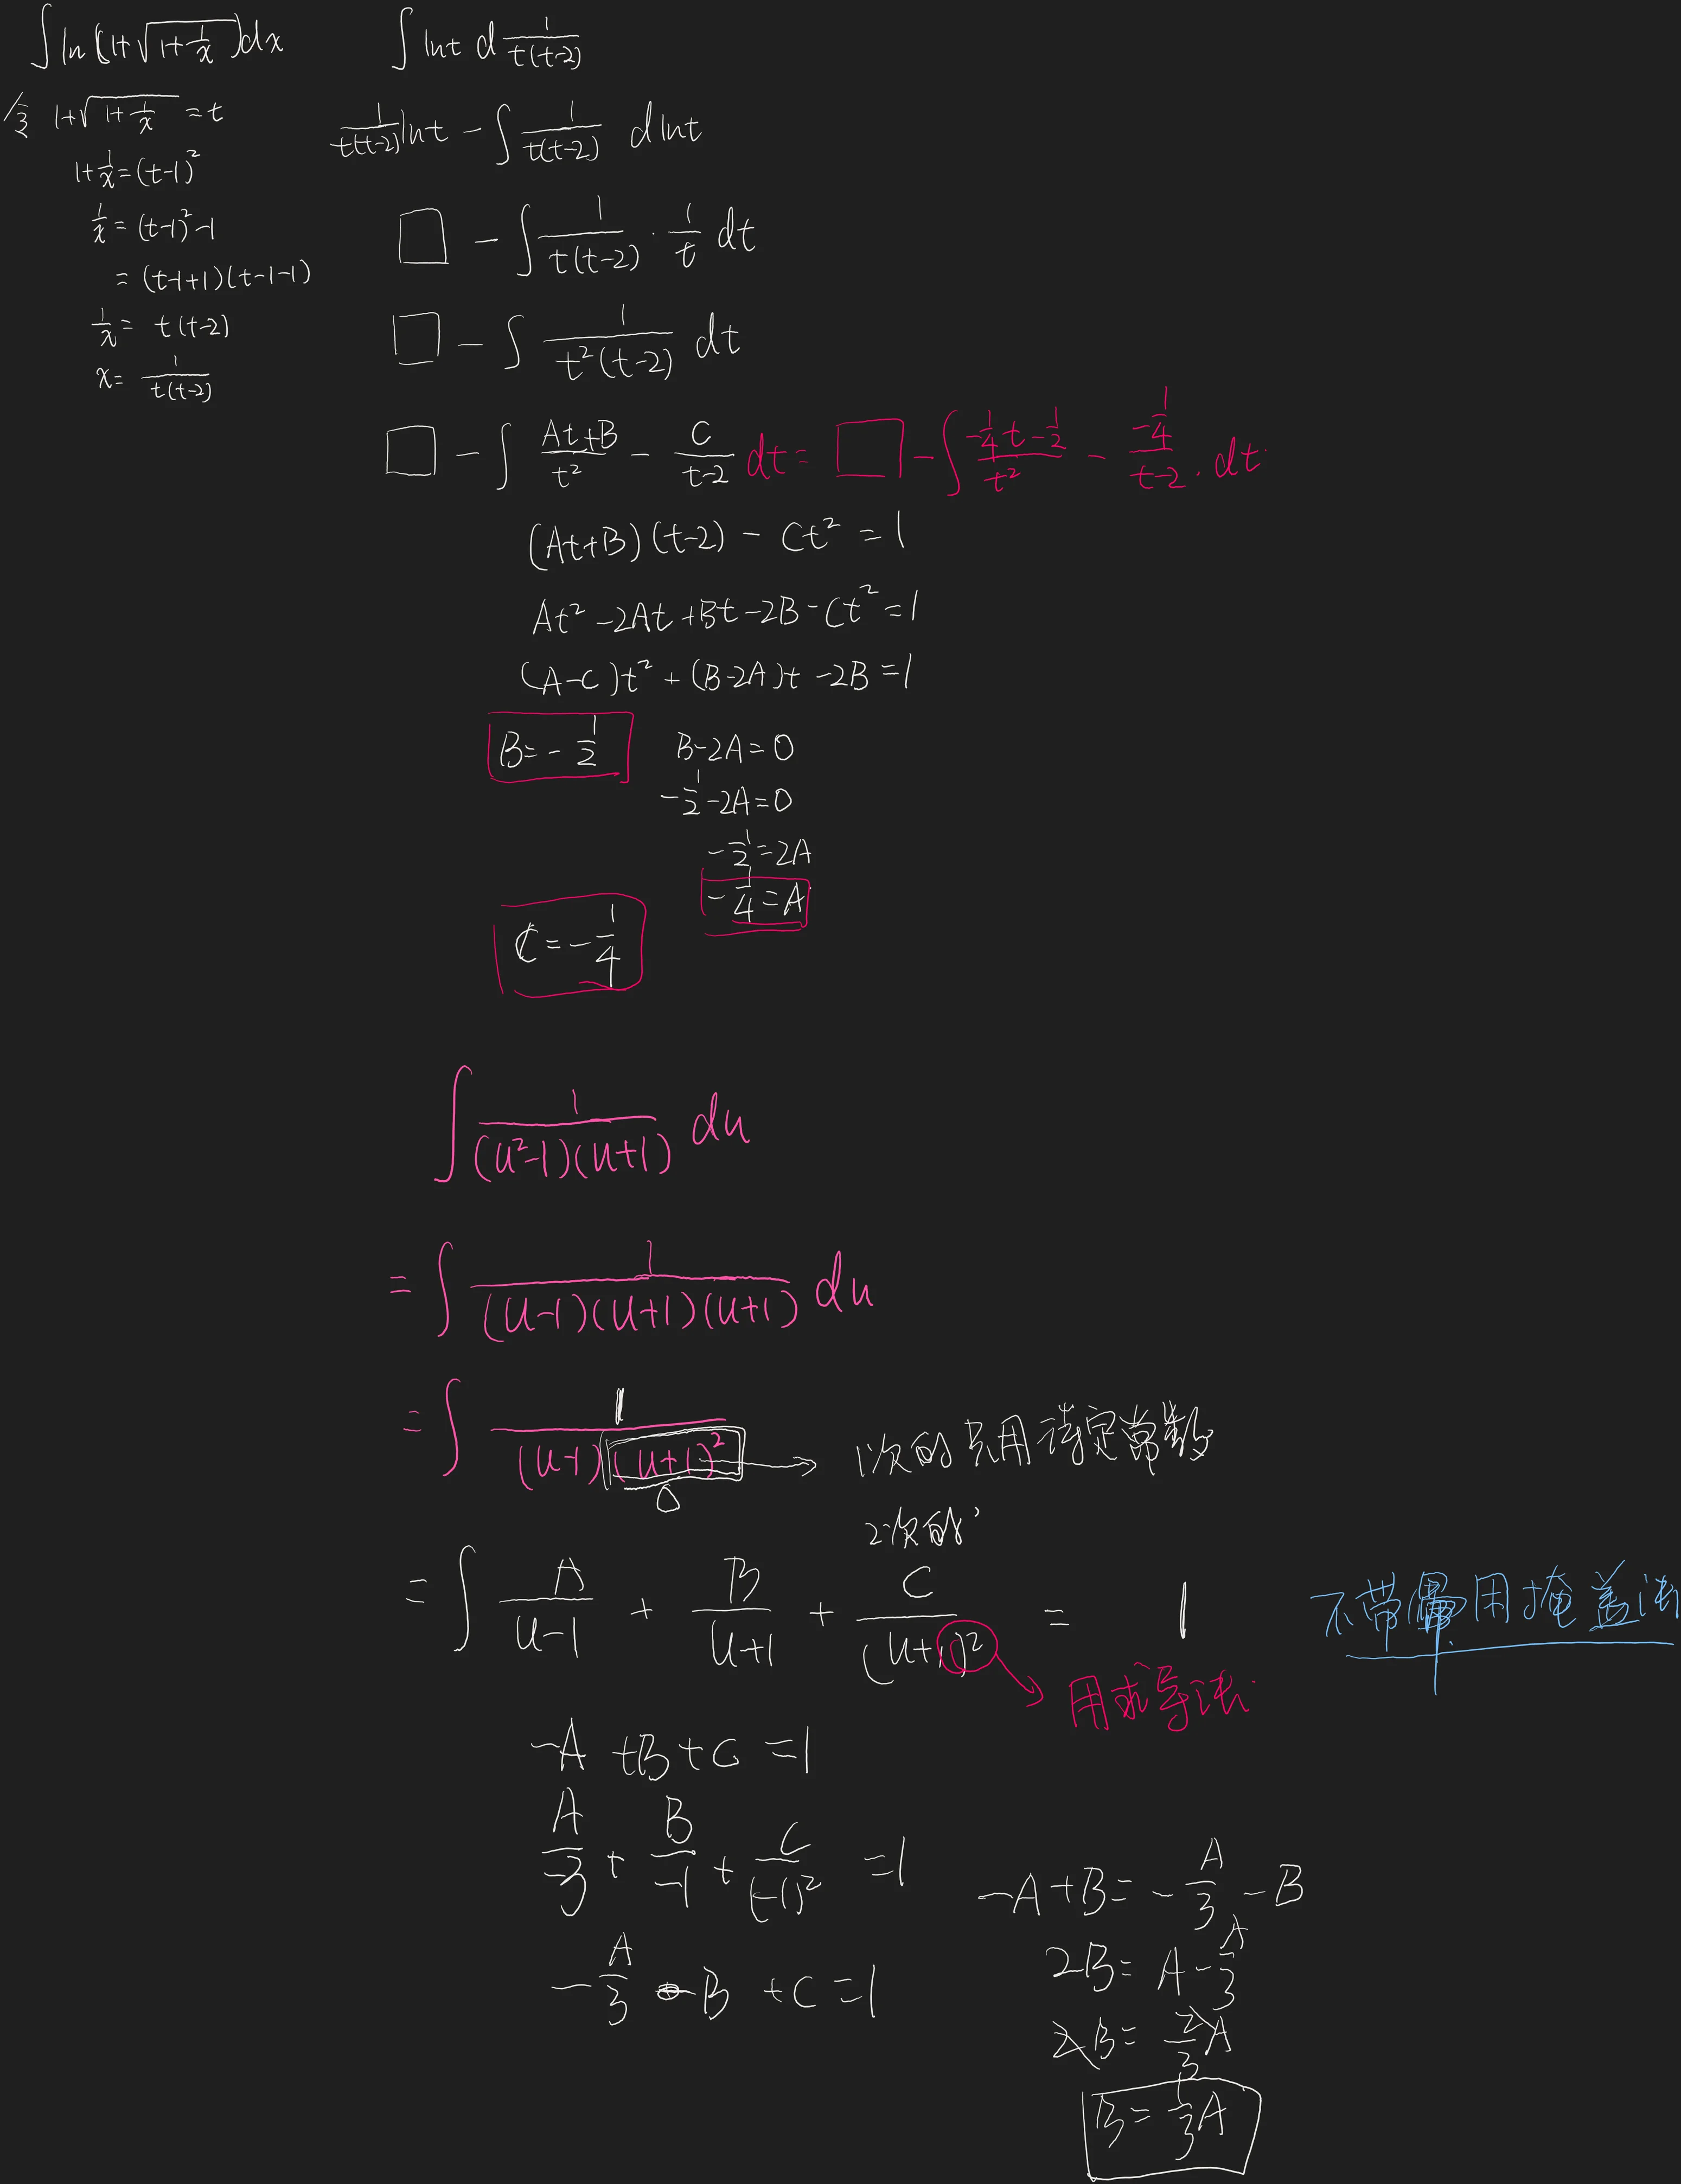 ∫ln(1+√(1+1/x))dx
令 1+√(1+1/x) = t
1+1/x=(t-1)²
1/x = (t-1)²-1
= (t-1+1)(t-1-1)
1/x = t(t-2)
x= 1/(t(t-2))
∫lnt d 1/(t(t-2))
1/(t(t-2)) lnt - ∫ 1/(t(t-2)) dlnt
□ - ∫ 1/(t(t-2)) · 1/t dt
□ - ∫ 1/(t²(t-2)) dt
□ - ∫ (At+B)/t² - C/(t-2) dt = □ - ∫ (-1/4 t - 1/2)/t² - (-1/4)/(t-2) · dt
(At+B)(t-2) - Ct² = 1
At² -2At +Bt-2B-Ct² = 1
(A-C)t² + (B-2A)t -2B=1
B=-1/2
B-2A=0
-1/2-2A=0
-1/2=2A
-1/4=A
C=-1/4
∫ 1/((u²-1)(u+1)) du
= ∫ 1/((u-1)(u+1)(u+1)) du
= ∫ 1/((u-1)(u+1)²) → 1次的只用待定常数
2次的
= ∫ A/(u-1) + B/(u+1) + C/(u+1)² = 1
用求导法
用掩盖法
-A+B+C=1
A/-3 + B/-1 + C/(-1)² =1
-A/3 -B +C=1
-A+B=-A/3-B
2B=A-A/3
2B=2/3A
B=1/3A